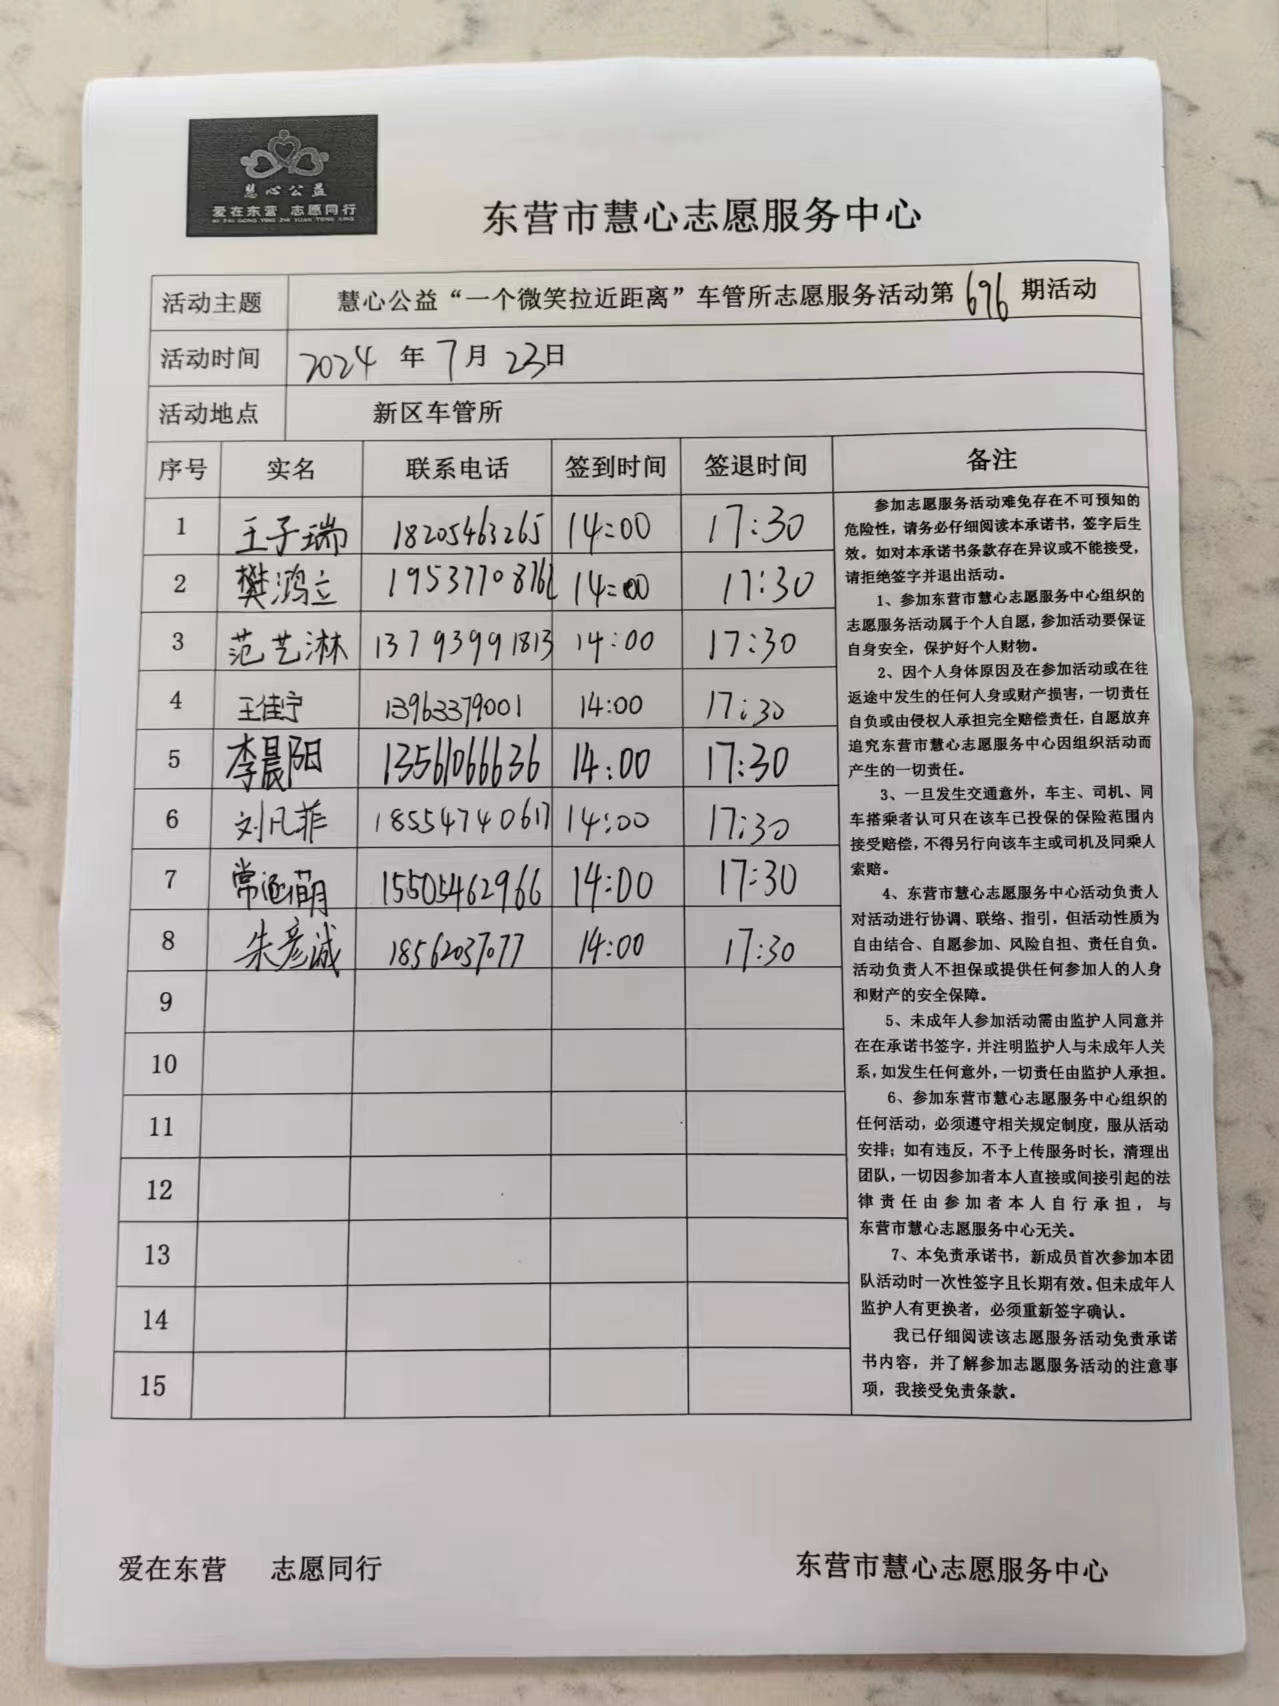 慧心公益
爱在东营 志愿同行
AI ZAI DONG YING ZHI YUAN TONG XING
东营市慧心志愿服务中心
活动主题 慧心公益“一个微笑拉近距离”车管所志愿服务活动第696期活动
活动时间 2024年7月23日
活动地点 新区车管所
序号 实名 联系电话 签到时间 签退时间 备注
1 王子瑞 18205463265 14:00 17:30
2 樊鸿立 14:00 17:30
3 范艺淋 13793991813 14:00 17:30
4 王佳宁 13963379001 14:00 17:30
5 李晨阳 13561066636 14:00 17:30
6 刘凡菲 18554740617 14:00 17:30
7 常涵萌 15505462966 14:00 17:30
8 朱彦诚 18562037077 14:00 17:30
9
10
11
12
13
14
15
参加志愿服务活动难免存在不可预知的
危险性，请务必仔细阅读本承诺书，签字后生
效。如对本承诺书条款存在异议或不能接受，
请拒绝签字并退出活动。
1、参加东营市慧心志愿服务中心组织的
志愿服务活动属于个人自愿，参加活动要保证
自身安全，保护好个人财物。
2、因个人身体原因及在参加活动或在往
返途中发生的任何人身或财产损害，一切责任
自负或由侵权人承担完全赔偿责任，自愿放弃
追究东营市慧心志愿服务中心因组织活动而
产生的一切责任。
3、一旦发生交通意外，车主、司机、同
车搭乘者认可只在该车已投保的保险范围内
接受赔偿，不得另行向该车主或司机及同乘人
索赔。
4、东营市慧心志愿服务中心活动负责人
对活动进行协调、联络、指引，但活动性质为
自由结合、自愿参加、风险自担、责任自负。
活动负责人不担保或提供任何参加人的人身
和财产的安全保障。
5、未成年人参加活动需由监护人同意并
在在承诺书签字，并注明监护人与未成年人关
系，如发生任何意外，一切责任由监护人承担。
6、参加东营市慧心志愿服务中心组织的
任何活动，必须遵守相关规定制度，服从活动
安排；如有违反，不予上传服务时长，清理出
团队，一切因参加者本人直接或间接引起的法
律责任由参加者本人自行承担，与
东营市慧心志愿服务中心无关。
7、本免责承诺书，新成员首次参加本团
队活动时一次性签字且长期有效。但未成年人
监护人有更换者，必须重新签字确认。
我已仔细阅读该志愿服务活动免责承诺
书内容，并了解参加志愿服务活动的注意事
项，我接受免责条款。
爱在东营 志愿同行 东营市慧心志愿服务中心